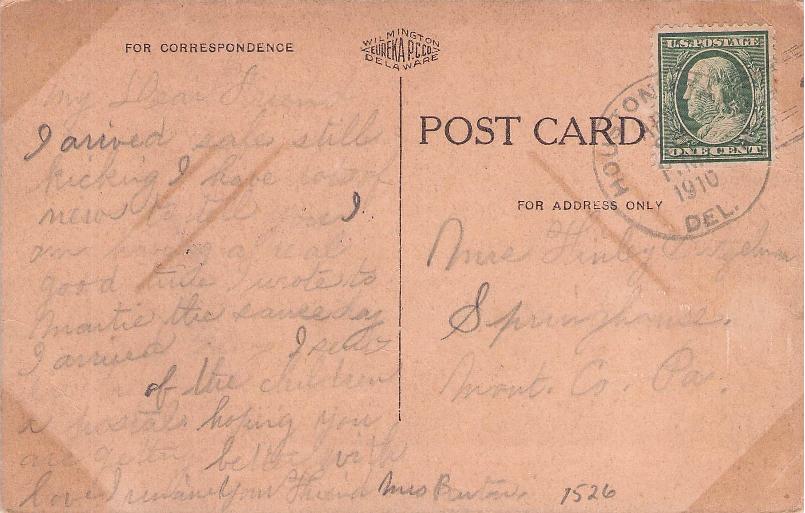 FOR CORRESPONDENCE
WILMINGTON
EUREKA P.C.CO.
DELAWARE
U.S. POSTAGE
ONE CENT
HOUSTON
P.M.
1910
DEL.
POST CARD
FOR ADDRESS ONLY
My Dear Friend
I arived safe still
kicking I have lots of
news to tell I
am having a real
good time I wrote to
Martie the same day
I arrived I sent
of the children
a postal hoping you
are getting better with
love I remain Your Friend Mrs
Finley
Mont. Co. Pa.
1526